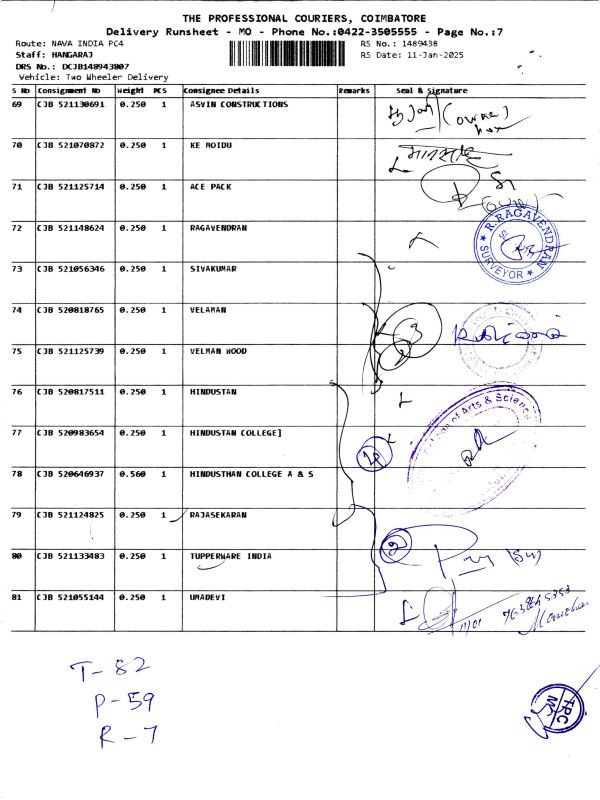 THE PROFESSIONAL COURIERS, COIMBATORE
Delivery Runsheet - MO - Phone No.:0422-3505555 - Page No.:7
Route: NAVA INDIA PC4 RS No.: 1489438
Staff: HANGARAJ RS Date: 11-Jan-2025
DRS No.: DCJB148943807
Vehicle: Two Wheeler Delivery
S No Consignment No Weight PCS Consignee Details Remarks Seal & Signature
69 CJB 521130691 0.250 1 ASVIN CONSTRUCTIONS
70 CJB 521070872 0.250 1 KE MOIDU
71 CJB 521125714 0.250 1 ACE PACK
72 CJB 521148624 0.250 1 RAGAVENDRAN
R.RAGAVENDRAN
SURVEYOR
73 CJB 521056346 0.250 1 SIVAKUMAR
74 CJB 520818765 0.250 1 VELAMAN
3
75 CJB 521125739 0.250 1 VELMAN WOOD
76 CJB 520817511 0.250 1 HINDUSTAN
of Arts & Science
77 CJB 520983654 0.250 1 HINDUSTAN COLLEGE]
78 CJB 520646937 0.560 1 HINDUSTHAN COLLEGE A & S
79 CJB 521124825 0.250 1 RAJASEKARAN
80 CJB 521133483 0.250 1 TUPPERWARE INDIA
81 CJB 521055144 0.250 1 UMADEVI
11/01
T-82
P-59
R-7
TPC